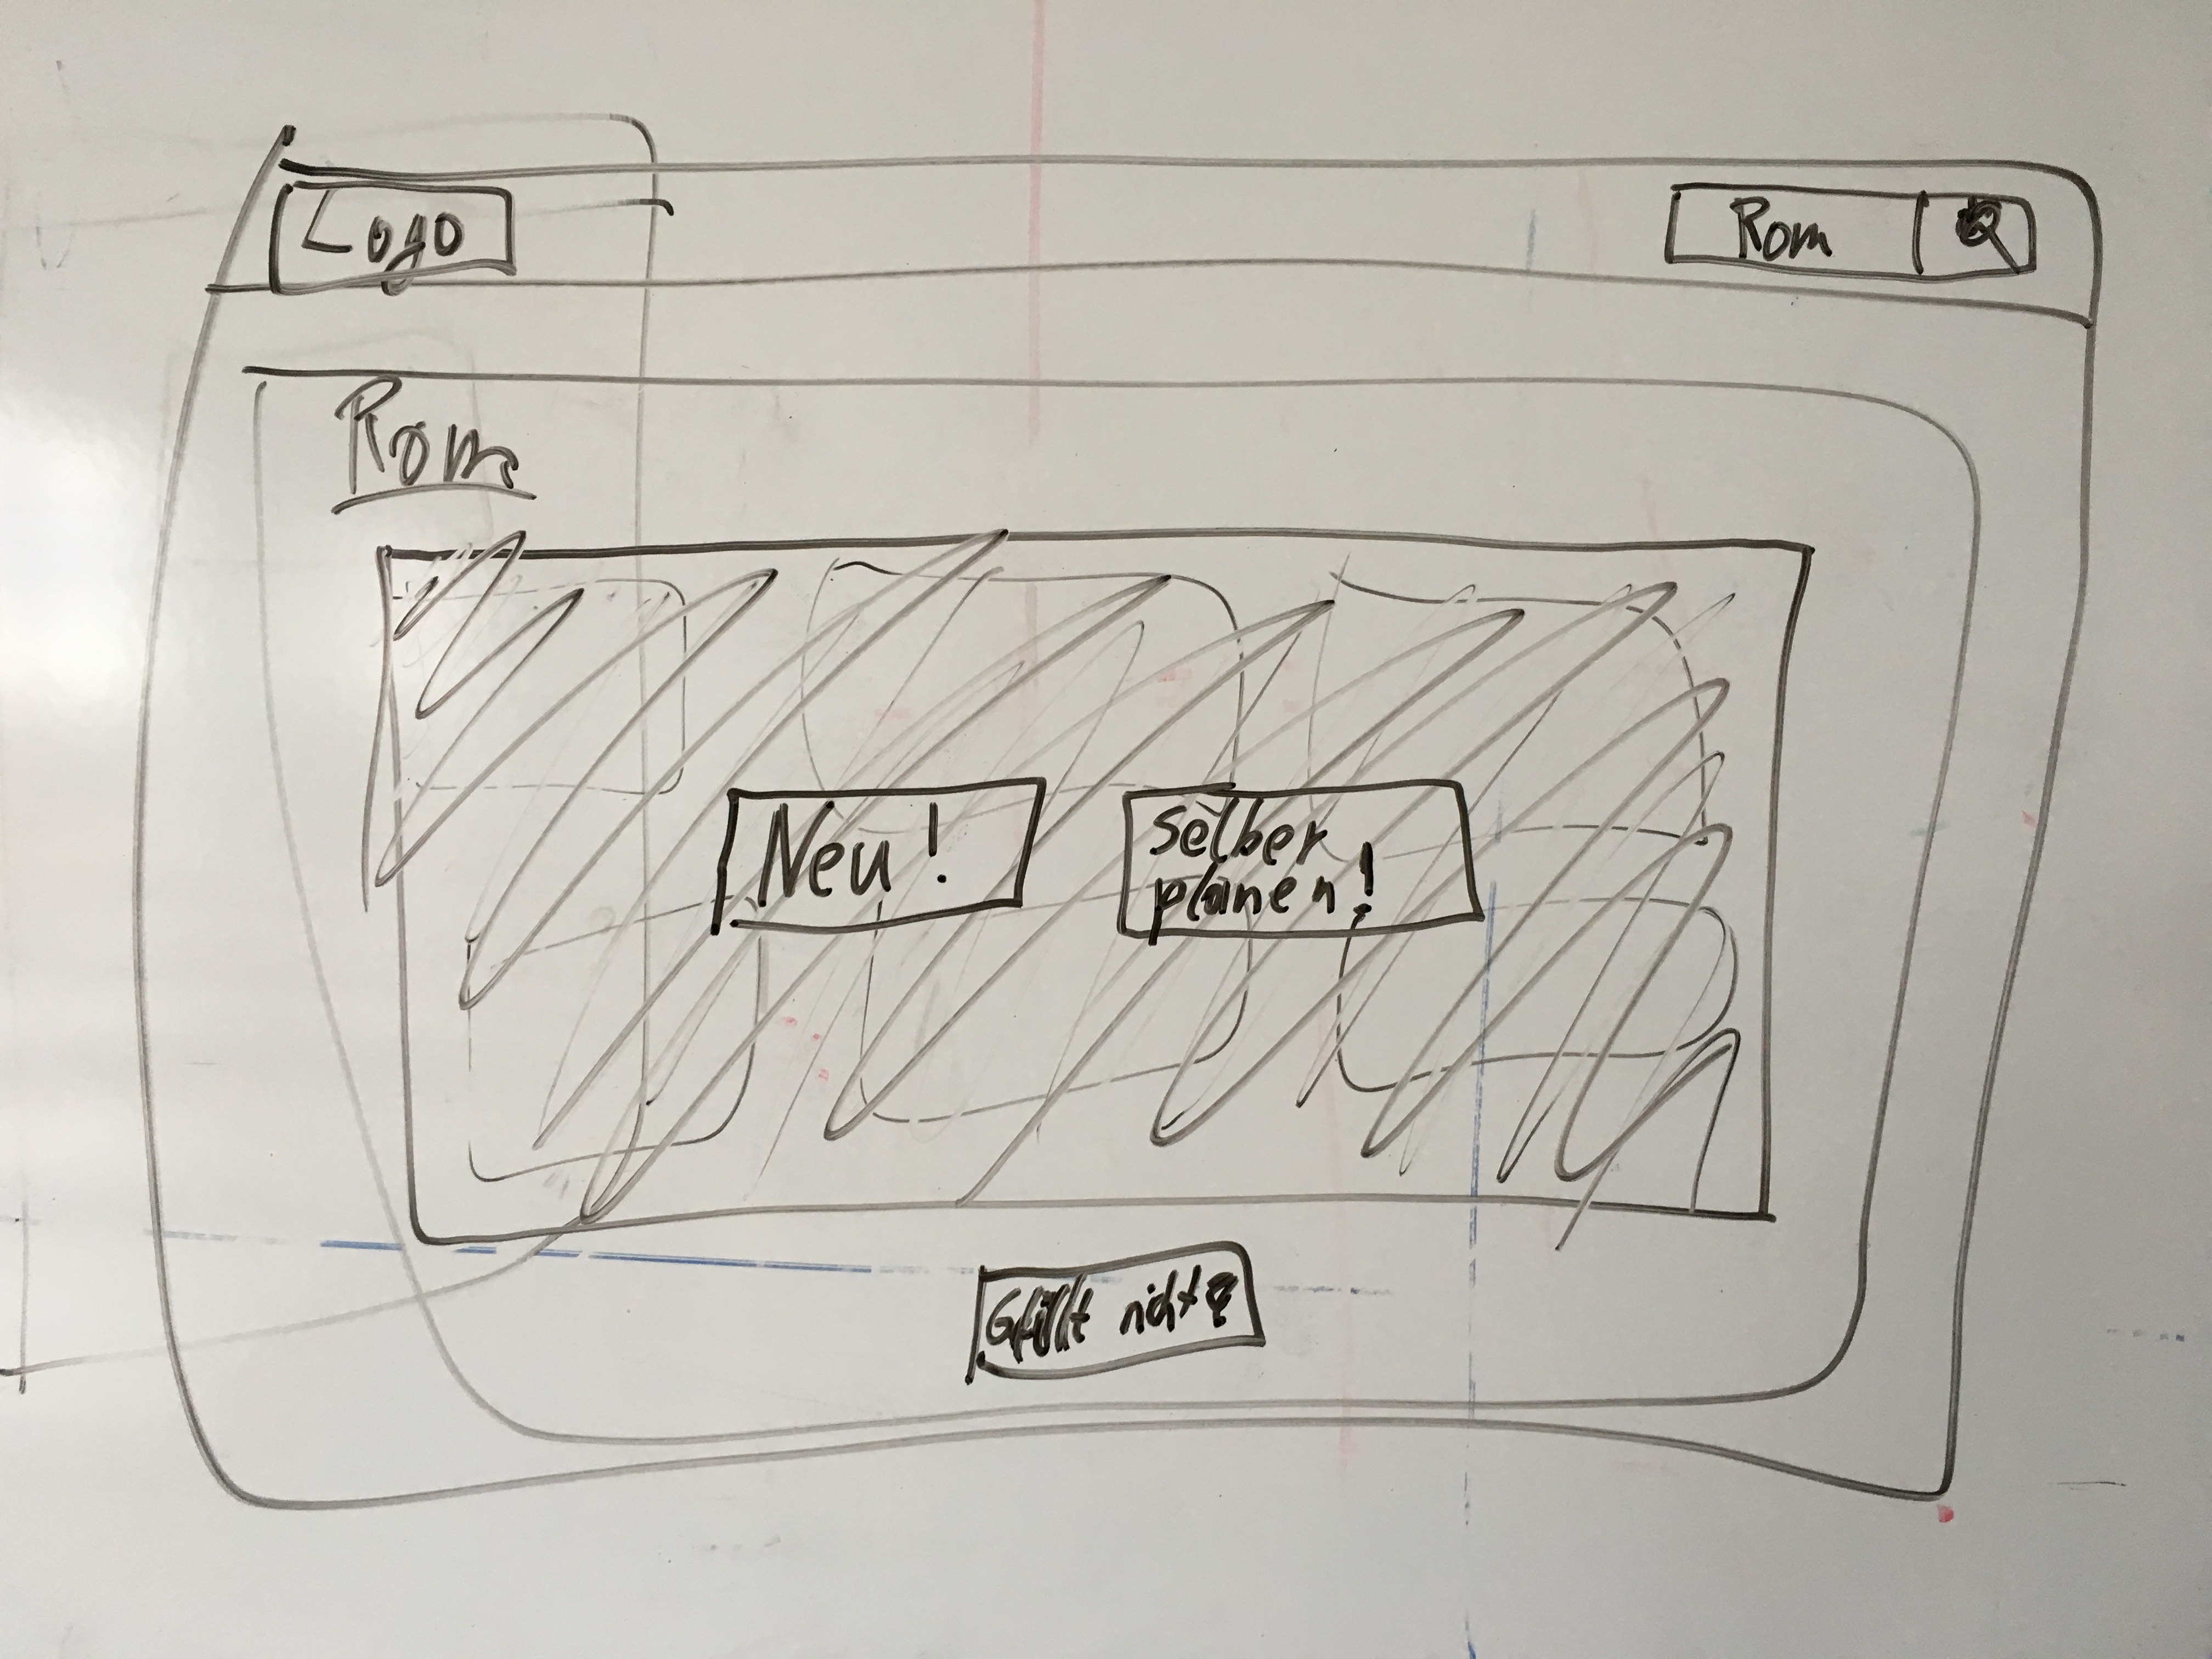 Logo
Rom
Rom
Neu!
selber
planen!
Gfällt nicht?